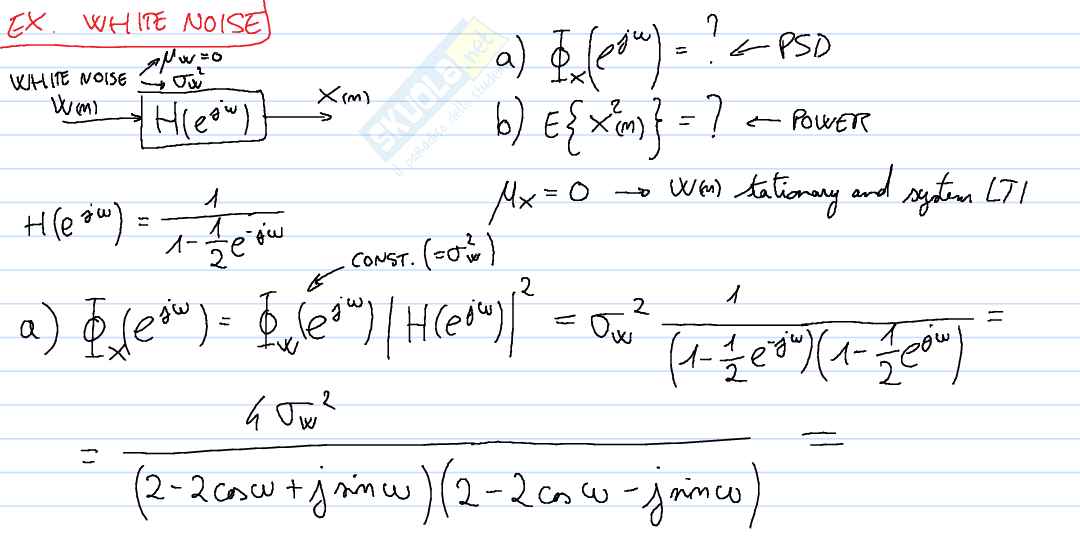 EX. WHITE NOISE
μw=0
WHITE NOISE → σw²
W(n) → H(e^jω) → X(n)
a) Φx(e^jω) = ? ← PSD
b) E{X²(n)} = ? ← POWER
μx = 0 → W(n) stationary and system LTI
H(e^jω) = 1 / (1 - 1/2 e^-jω)
CONST. (=σw²)
a) Φx(e^jω) = Φw(e^jω) |H(e^jω)|² = σw² 1 / ((1 - 1/2 e^-jω)(1 - 1/2 e^jω)) =
= 4σw² / ((2 - 2cosω + j sinω)(2 - 2cosω - j sinω)) =
SKUOLA.net